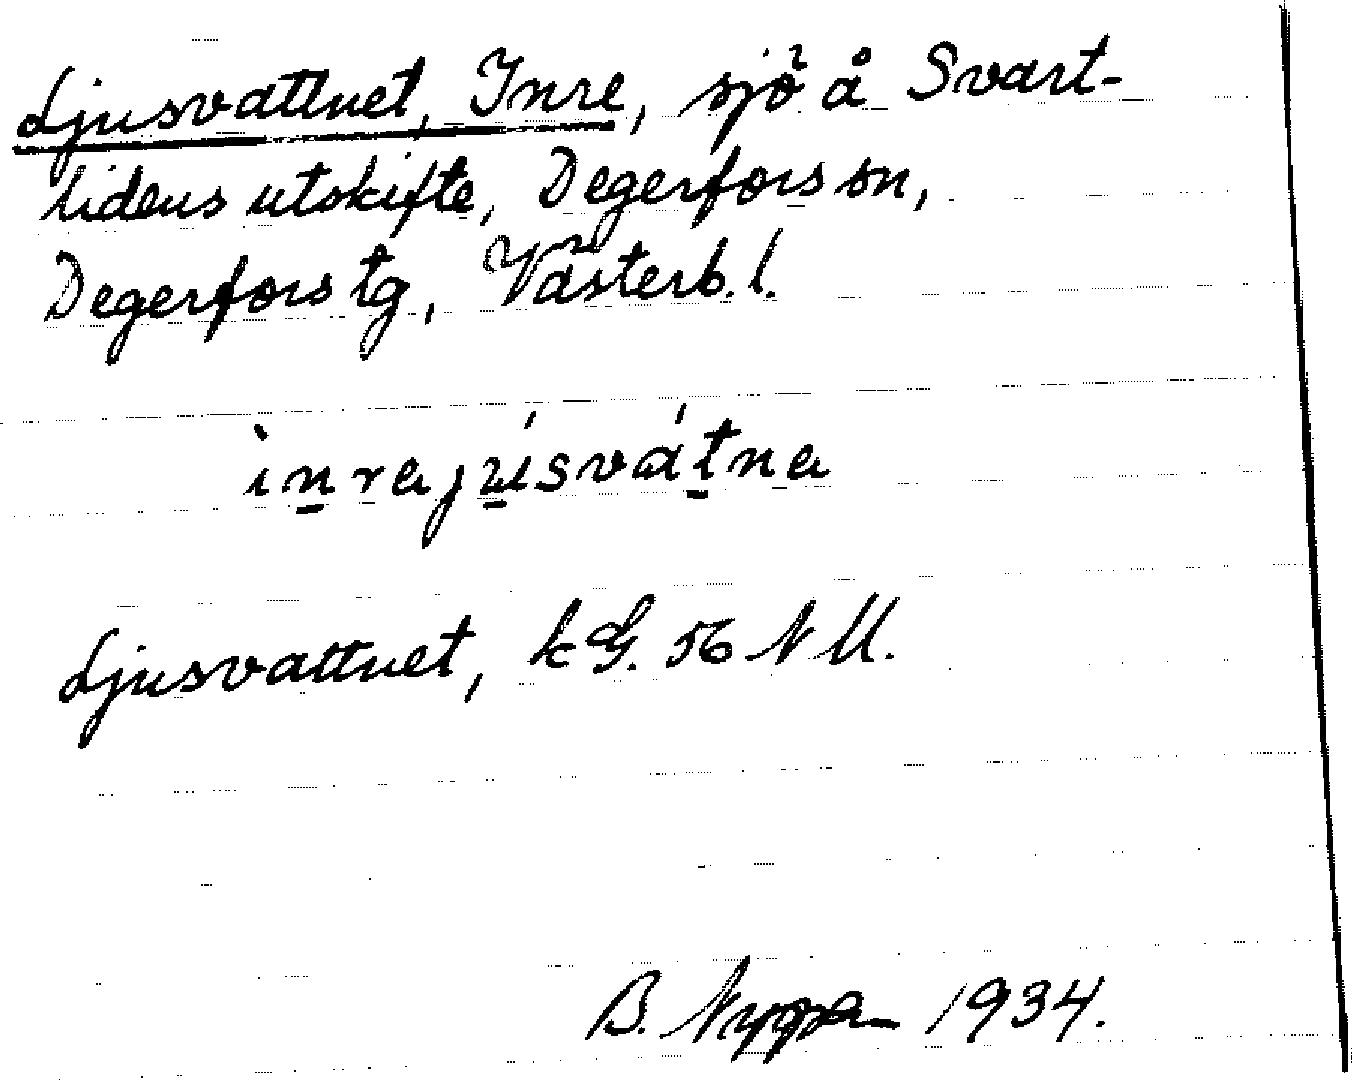 Ljusvattnet, Inre, sjö å Svart-
lidens utskifte, Degerfors sn,
Degerfors tg, Västerb. l.
ìnrajúsvátna
Ljusvattnet, kG. 56 N M.
B. 1934.